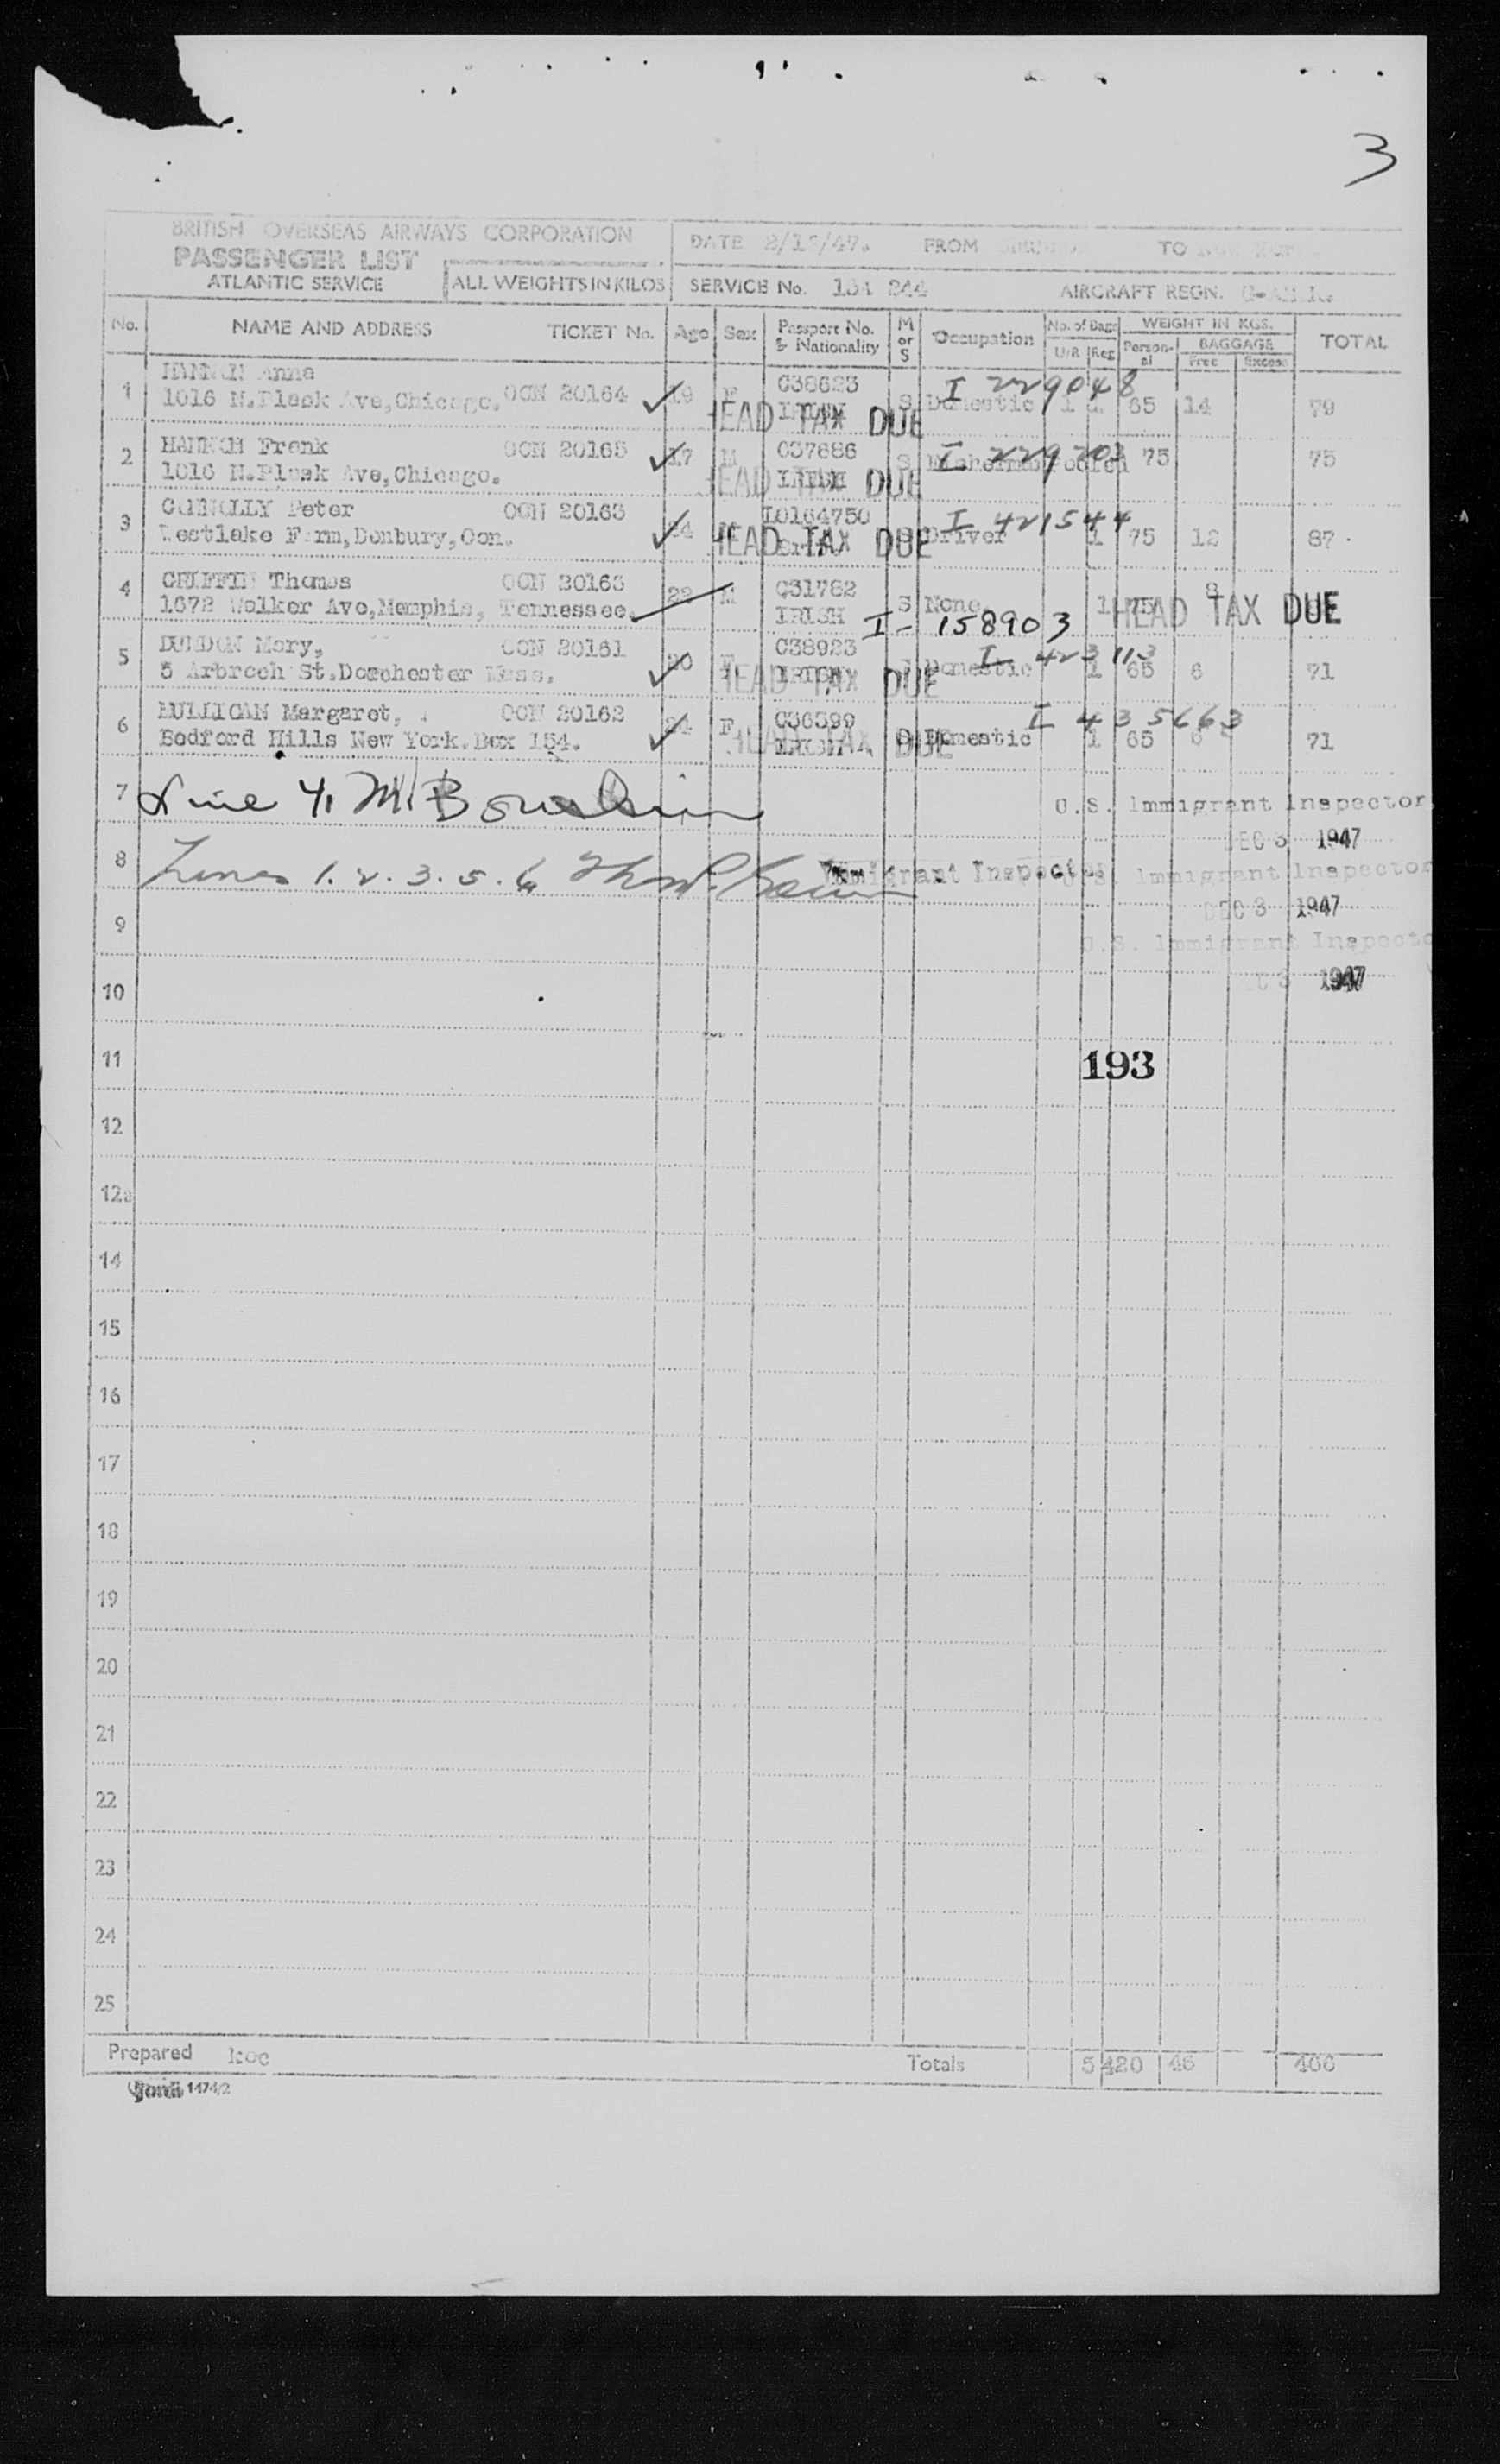 3
BRITISH OVERSEAS AIRWAYS CORPORATION
PASSENGER LIST
ATLANTIC SERVICE
ALL WEIGHTS IN KILOS
DATE FROM TO
SERVICE No. AIRCRAFT REGN.
No. NAME AND ADDRESS TICKET No. Age Sex Passport No. & Nationality M or S Occupation No. of Bags U/R Reg WEIGHT IN KGS. Personal BAGGAGE Free Excess TOTAL
1 Anna
1016 Ave, Chicago. OCN 20164 19 F C38623 S Domestic 1 65 14 79
I 229048
HEAD TAX DUE
2 Frank OCN 20165 17 M C37686 S 75 75
Ave, Chicago. IRISH
I 229203
HEAD TAX DUE
3 CONNOLLY Peter OCN 20163 Driver 1 75 12 87
Westlake Farm, Danbury, Con.
I 421544
HEAD TAX DUE
4 GRIFFIN Thomas OCN 20163 22 M C31762 S None 1 75 8
1672 Walker Ave, Memphis, Tennessee. IRISH
I - 158903
HEAD TAX DUE
5 Mary, OCN 20161 20 F C38923 Domestic 1 65 6 71
5 St. Dorchester Mass. IRISH
I 423113
HEAD TAX DUE
6 MULLIGAN Margaret, OCN 20162 24 F C36599 Domestic 1 65 6 71
Bedford Hills New York. Box 154. IRISH
I 435663
HEAD TAX DUE
7 Line 4, M.
U.S. Immigrant Inspector
DEC 3 1947
8 Lines 1. 2. 3. 5. 6
Immigrant Inspector
U.S. Immigrant Inspector
DEC 3 1947
9
U.S. Immigrant Inspecto
1947
10
11
193
12
12a
14
15
16
17
18
19
20
21
22
23
24
25
Prepared Totals 5 420 46 466
1474/2